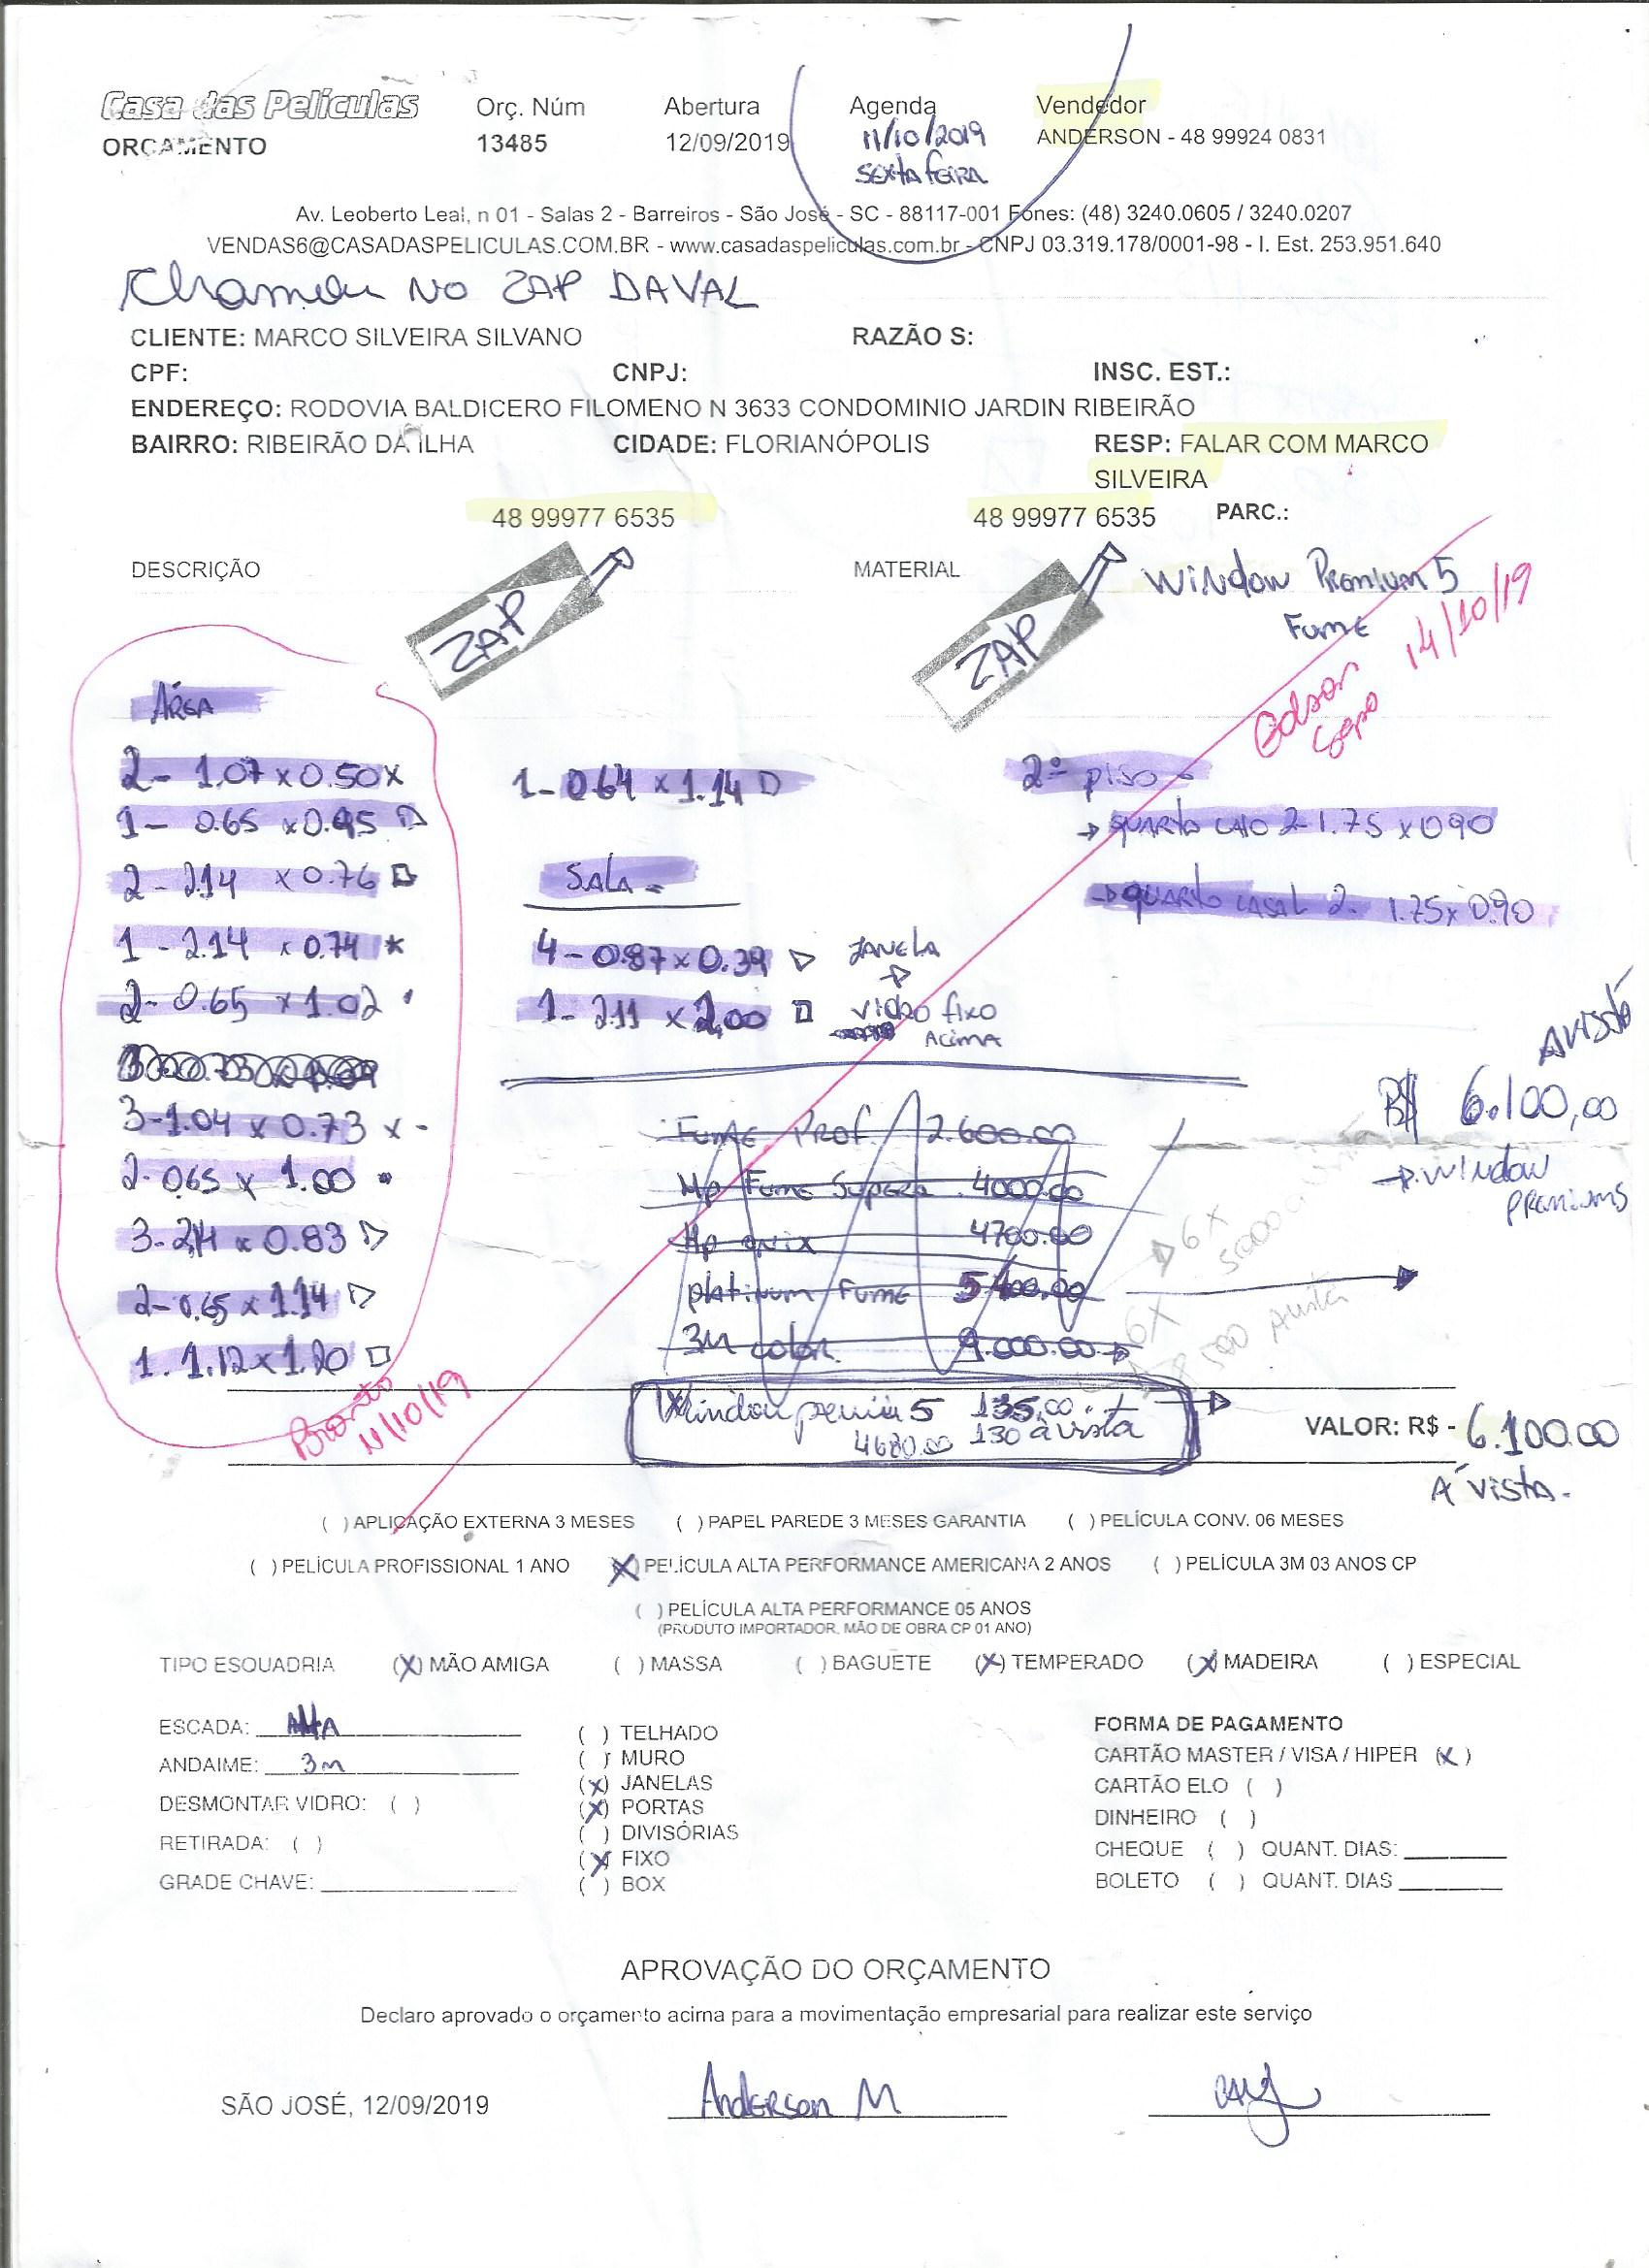 Casa das Películas Orç. Núm Abertura Agenda Vendedor
ORÇAMENTO 13485 12/09/2019 11/10/2019 ANDERSON - 48 99924 0831
SEXTA FEIRA
Av. Leoberto Leal, n 01 - Salas 2 - Barreiros - São José - SC - 88117-001 Fones: (48) 3240.0605 / 3240.0207
VENDAS6@CASADASPELICULAS.COM.BR - www.casadaspeliculas.com.br - CNPJ 03.319.178/0001-98 - I. Est. 253.951.640
Chamou NO ZAP DAVAL
CLIENTE: MARCO SILVEIRA SILVANO RAZÃO S:
CPF: CNPJ: INSC. EST.:
ENDEREÇO: RODOVIA BALDICERO FILOMENO N 3633 CONDOMINIO JARDIN RIBEIRÃO
BAIRRO: RIBEIRÃO DA ILHA CIDADE: FLORIANÓPOLIS RESP: FALAR COM MARCO
SILVEIRA
48 99977 6535 48 99977 6535 PARC.:
DESCRIÇÃO MATERIAL WINDOW PREMIUM 5
ZAP ZAP FUME
14/10/19
Edson
ÁREA
2- 1.07 x 0.50 x 1- 0.64 x 1.14 2º piso -
1- 0.65 x 0.95 → quarto CAIO 2- 1.75 x 0.90
2- 2.14 x 0.76 SALA - → quarto CASAL 2- 1.75 x 0.90
1- 2.14 x 0.74 * 4- 0.87 x 0.39 JANELA
2- 0.65 x 1.02 1- 2.11 x 2,00 VIDRO fixo
ACIMA
AVISTA
3- 1.04 x 0.73 x - FUME Prof. 2.600.00 R$ 6.100,00
2- 0.65 x 1.00 Hp FUME SUPERA 4000.00 → WINDOW
PREMIUM5
3- 2.14 x 0.83 Hp onix 4700.00 6X
5000
2- 0.65 x 1.14 platinum FUME 5400.00
1. 1.12 x 1.20 3M color. 9.000.00 6X 8 500 Avista
Pronto
11/10/19
Window premiu 5 135,00
4680.00 130 à vista
VALOR: R$ - 6.100.00
A VISTA.
( ) APLICAÇÃO EXTERNA 3 MESES ( ) PAPEL PAREDE 3 MESES GARANTIA ( ) PELÍCULA CONV. 06 MESES
( ) PELÍCULA PROFISSIONAL 1 ANO (X) PELÍCULA ALTA PERFORMANCE AMERICANA 2 ANOS ( ) PELÍCULA 3M 03 ANOS CP
( ) PELÍCULA ALTA PERFORMANCE 05 ANOS
(PRODUTO IMPORTADOR. MÃO DE OBRA CP 01 ANO)
TIPO ESQUADRIA (X) MÃO AMIGA ( ) MASSA ( ) BAGUETE (X) TEMPERADO (X) MADEIRA ( ) ESPECIAL
ESCADA: AltA
ANDAIME: 3m
DESMONTAR VIDRO: ( )
RETIRADA: ( )
GRADE CHAVE:
( ) TELHADO
( ) MURO
(X) JANELAS
(X) PORTAS
( ) DIVISÓRIAS
(X) FIXO
( ) BOX
FORMA DE PAGAMENTO
CARTÃO MASTER / VISA / HIPER (X)
CARTÃO ELO ( )
DINHEIRO ( )
CHEQUE ( ) QUANT. DIAS:
BOLETO ( ) QUANT. DIAS
APROVAÇÃO DO ORÇAMENTO
Declaro aprovado o orçamento acima para a movimentação empresarial para realizar este serviço
SÃO JOSÉ, 12/09/2019 Anderson M